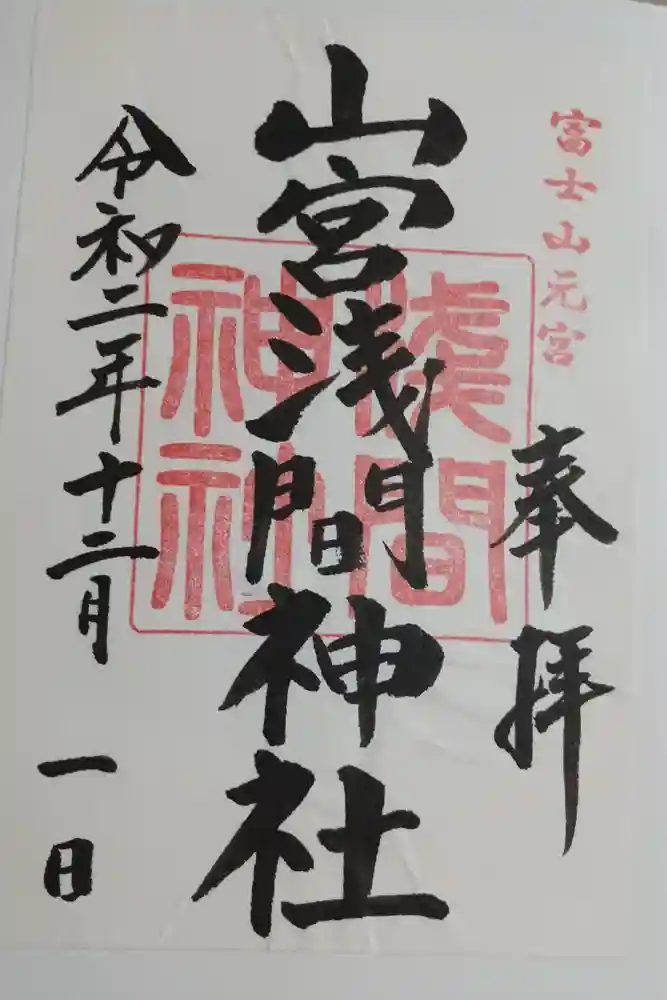 富士山元宮
奉拝
山宮浅間神社
淺間
神社
令和二年十二月
一日